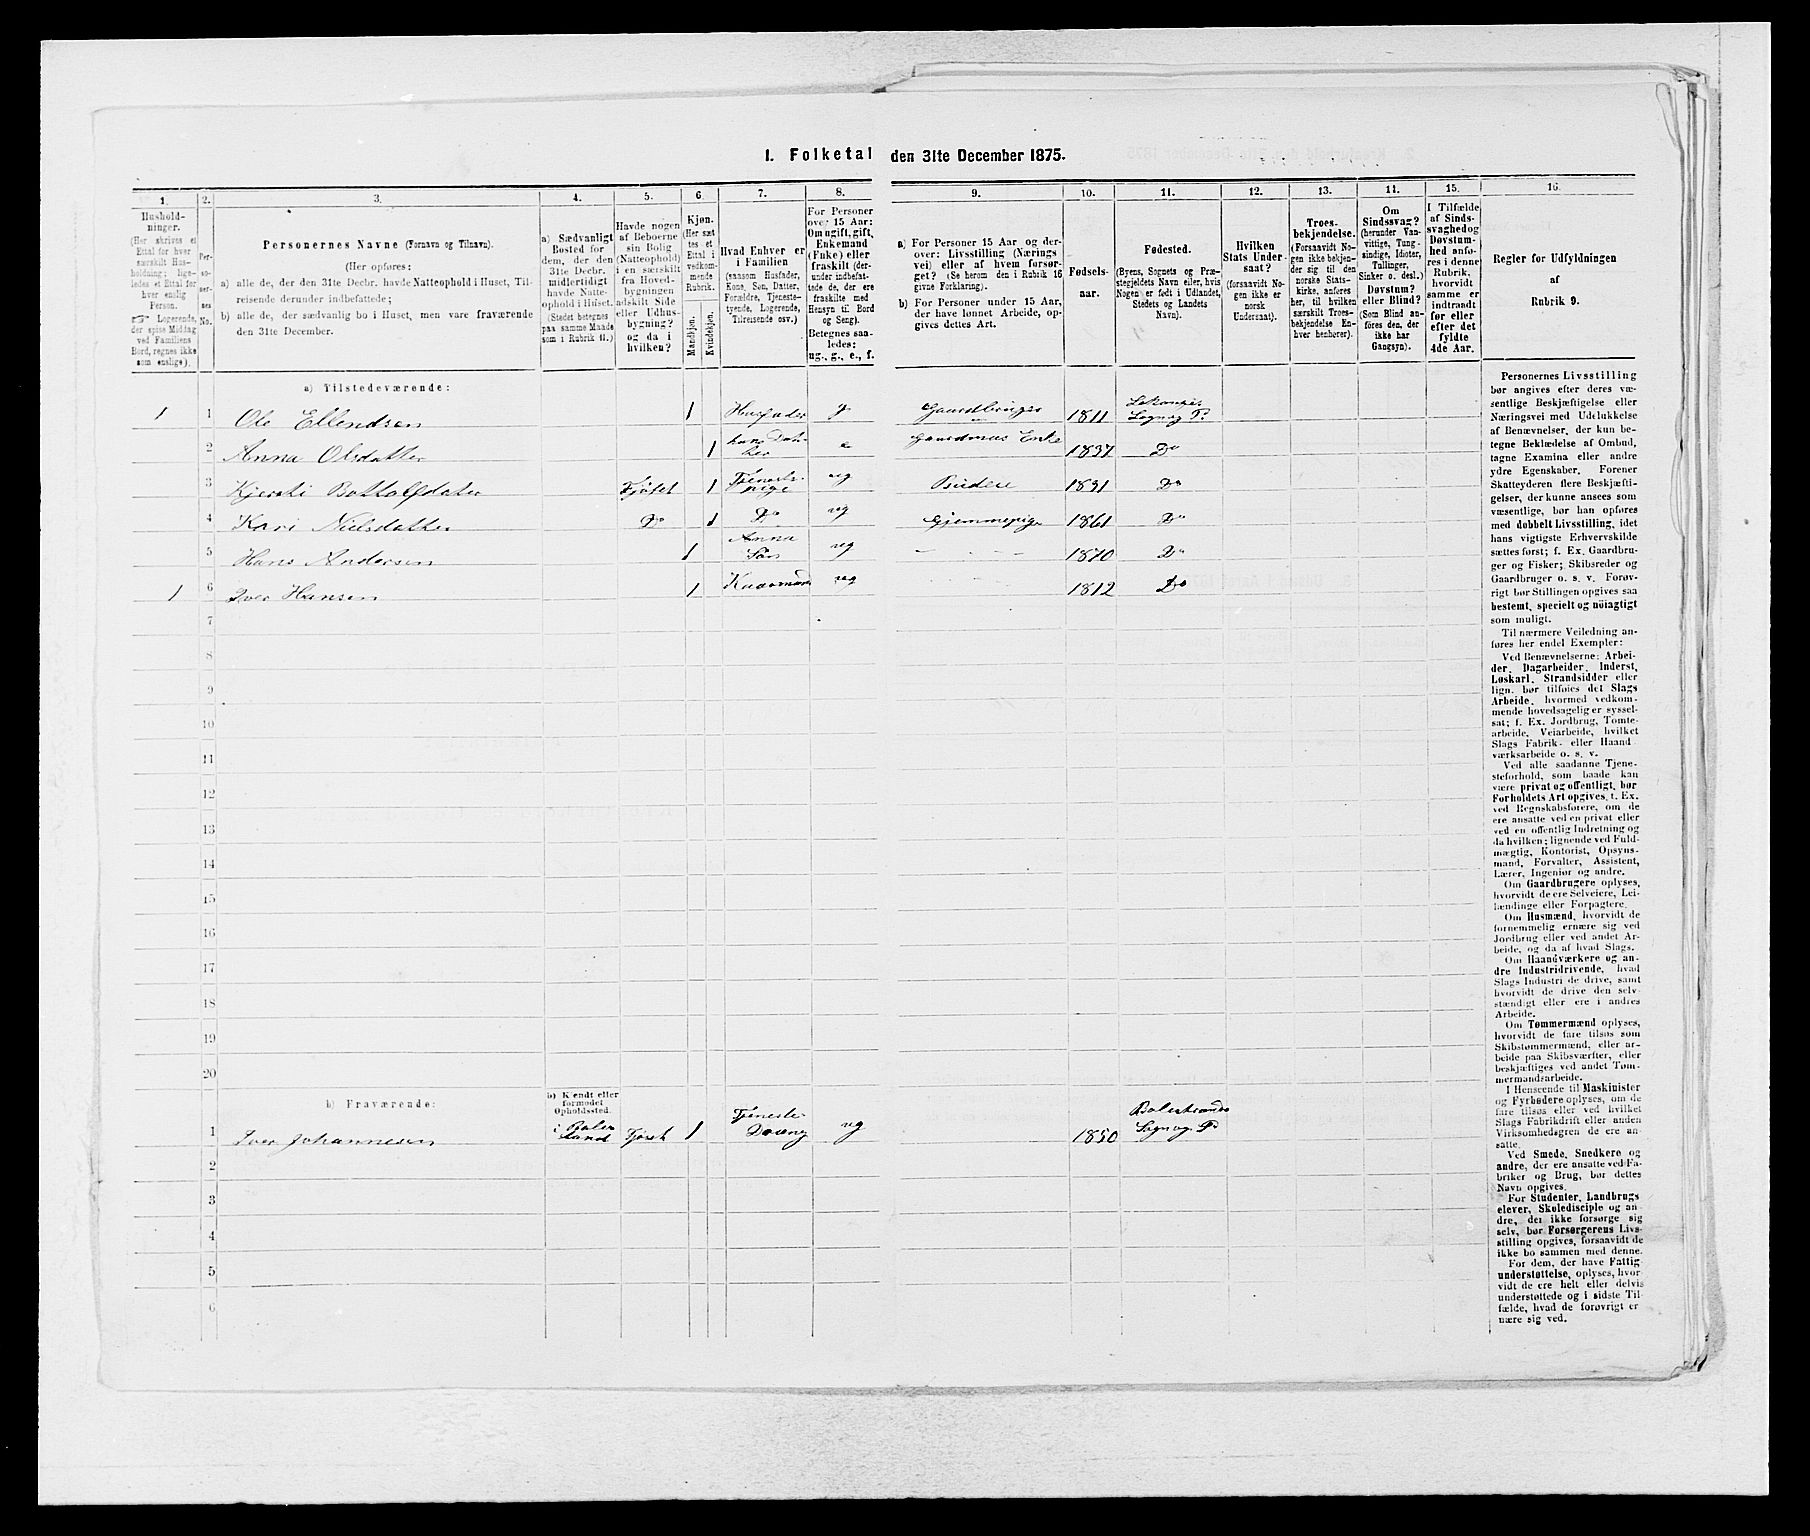 1. Folketal den 31te December 1875.
1.
2.
3.
4.
5.
6.
7.
8.
9.
10.
11.
12.
13.
11.
15.
16.
Hushold-
ninger.
(Her skrives et
Ettal for hver
særskilt Hus-
holdning; lige-
ledes et Ettal for
hver enslig
Person.
☞ Logerende,
der spise Middag
ved Familiens
Bord, regnes ikke
som enslige).
Per-
so-
ner-
nes
No.
Personernes Navne (Fornavn og Tilnavn).
(Her opføres:
a) alle de, der den 31te Decbr. havde Natteophold i Huset, Til-
reisende derunder indbefattede;
b) alle de, der sædvanlig bo i Huset, men vare fraværende
den 31te December.
a) Sædvanligt
Bosted for
dem, der den
31te Decbr.
midlertidigt
havde Natte-
ophold i Huset.
(Stedet betegnes
paa samme Maade
som i Rubrik 11.)
Havde nogen
af Beboerne
sin Bolig
(Natteophold)
i en særskilt
fra Hoved-
bygningen
adskilt Side
eller Udhus-
bygning?
og da i
hvilken?
Kjøn.
(Her sæt
tes et
Ettal i
vedkom-
mende
Rubrik.
Mandkjøn.
Kvindekjøn.
Hvad Enhver er
i Familien
(saasom Husfader,
Kone, Søn, Datter,
Forældre, Tjeneste-
tyende, Logerende,
Tilreisende osv.)
For Personer
over 15 Aar:
Om ugift, gift,
Enkemand
(Enke) eller
fraskilt (der-
under indbefat-
tede de, der ere
fraskilte med
Hensyn til Bord
og Seng).
Betegnes saa-
ledes:
ug., g., e., f.
a) For Personer 15 Aar og der-
over: Livsstilling (Nærings
vei) eller af hvem forsør-
get? (Se herom den i Rubrik 16
givne Forklaring).
b) For Personer under 15 Aar,
der have lønnet Arbeide, op-
gives dettes Art.
Fødsels-
aar.
Fødested.
(Byens, Sognets og Præ-
stegjeldets Navn eller, hvis
Nogen er født i Udlandet,
Stedets og Landets
Navn).
Hvilken
Stats Under-
saat?
(forsaavidt No-
gen ikke er
norsk
Undersaat).
Troes-
bekjendelse.
(Forsaavidt No-
gen ikke bekjen-
der sig til den
norske Stats-
kirke, anføres
her, til hvilken
særskilt Troes-
bekjendelse En-
hver henhører).
Om
Sindssvag?
(herunder Van-
vittige, Tung-
sindige, Idioter,
Tullinger,
Sinker o. desl.)
Døvstum?
eller Blind?
(Som Blind an-
føres den, der
ikke har
Gangsyn).
I Tilfælde
af Sinds-
svaghed og
Døvstum-
hed anfø-
res i denne
Rubrik,
hvorvidt
samme er
indtrandt
før eller
efter det
fyldte
4de Aar.
Regler for Udfyldningen
af
Rubrik 9.
a) Tilstedeværende:
1 1 Ole Ellendsen 1 Husfader g Gaardbruger 1811 Sogn og P.
2 Anna Olsdatter 1 hans Dat-
ter e Gaardmans Enke 1837 Do
3 Kjersti Bottolfdater Fjøset 1 Tjeneste-
pige ug Budeie 1831 Do
4 Kari Nielsdatter Do 1 Do ug Hjemmepige 1861 Do
5 Hans Andersen 1 Anna
Søn ug - - - 1870 Do
1 6 Iver Hansen 1 Kaarmand ug 1812 Do
7
8
9
10
11
12
13
14
15
16
17
18
19
20
b) Fraværende:
b) Kjendt eller
formodet
Opholdssted.
1 Iver Johannesen i Bale
strand Fjøset 1 Tjeneste-
Dreng ug 1850 Balestrands
Sogn og P.
2
3
4
5
6
Personernes Livsstilling
bør angives efter deres væ-
sentlige Beskjæftigelse eller
Næringsvei med Udelukkelse
af Benævnelser, der kun be-
tegne Beklædelse af Ombud,
tagne Examina eller andre
ydre Egenskaber. Forener
Skatteyderen flere Beskjæfti-
gelser, der kunne ansees som
væsentlige, bør han opføres
med dobbelt Livsstilling, idet
hans vigtigste Erhvervskilde
sættes først; f. Ex. Gaardbru-
ger og Fisker; Skibsreder og
Gaardbruger o. s. v. Forøv-
rigt bør Stillingen opgives saa
bestemt, specielt og nøiagtigt
som muligt.
Til nærmere Veiledning an-
føres her endel Exempler:
Ved Benævnelserne: Arbei-
der, Dagarbeider, Inderst,
Løskarl, Strandsidder eller
lign. bør tilføies det Slags
Arbeide, hvormed vedkom-
mende hovedsagelig er syssel-
sat; f. Ex. Jordbrug, Tomte-
arbeide, Veiarbeide, hvilket
Slags Fabrik- eller Haand
værksarbeide o. s. v.
Ved alle saadanne Tjene-
steforhold, som baade kan
være privat og offentligt, bør
Forholdets Art opgives, t. Ex.
ved Regnskabsførere, om de
ere ansatte ved en privat eller
ved en offentlig Indretning og
da hvilken; lignende ved Fuld-
mægtig, Kontorist, Opsyns-
mand, Forvalter, Assistent,
Lærer, Ingeniør og andre.
Om Gaardbrugere oplyses,
hvorvidt de ere Selveiere, Lei-
lændinge eller Forpagtere.
Om Husmænd, hvorvidt de
fornemmelig ernære sig ved
Jordbrug eller ved andet Ar-
beide, og da af hvad Slags.
Om Haandværkere og an-
dre Industridrivende, hvad
Slags Industri de drive, samt
hvorvidt de drive den selv-
stændigt eller ere i andres
Arbeide.
Om Tømmermænd oplyses,
hvorvidt de fare tilsøs som
Skibstømmermænd, eller ar-
beide paa Skibsværfter, eller
beskjæftiges ved andet Tøm-
mermandsarbeide.
I Henseende til Maskinister
og Fyrbødere oplyses, om de
fare tilsøs eller ved hvilket
Slags Fabrikdrift eller anden
Virksomhedsgren de ere an-
satte.
Ved Smede, Snedkere og
andre, der ere ansatte ved Fa-
briker og Brug, bør dettes
Navn opgives.
For Studenter, Landbrugs
elever, Skoledisciple og an-
dre, der ikke forsørge sig
selv, bør Forsørgerens Livs-
stilling opgives, forsaavidt de
ikke bo sammen med denne.
For dem, der have Fattig
understøttelse, oplyses, hvor-
vidt de ere helt eller delvis
understøttede og i sidste Til-
fælde, hvad de forøvrigt er
nære sig ved.